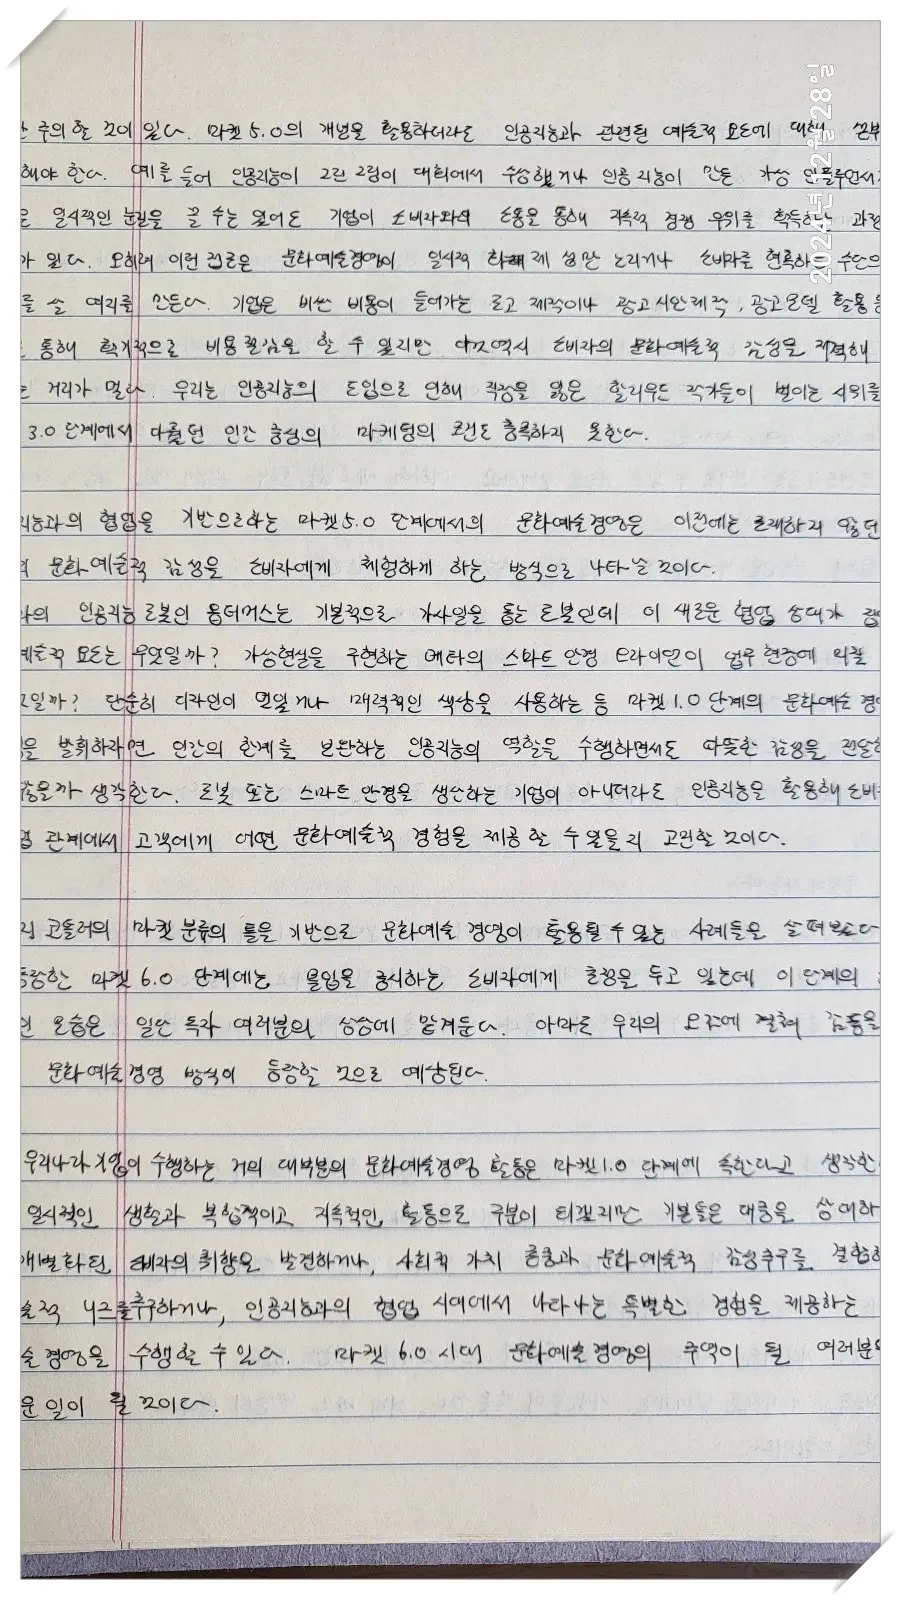 주의할 것이 있다. 마켓 5.0의 개념을 활용하더라도 인공지능과 관련된 예술적 모드에 대해
해야 한다. 예를 들어 인공지능이 그린 그림이 대회에서 수상했거나 인공지능이 만든 가상 인플루언서가
일시적인 눈길을 끌 수는 있어도 기업이 소비자와의 소통을 통해 지속적 경쟁 우위를 획득하는 과정
가 있다. 오히려 이런 접근은 문화예술경영이 일시적 화제성만 노리거나 소비자를 현혹하는 수단으
를 살 여지를 만든다. 기업은 비싼 비용이 들어가는 로고 제작이나 광고시안제작, 광고모델 활용 등
통해 획기적으로 비용절감을 할 수 있지만 이 역시 소비자의 문화예술적 감성을 자극해
는 거리가 멀다. 우리는 인공지능의 도입으로 인해 직장을 잃은 할리우드 작가들이 벌이는 시위를
3.0 단계에서 다뤘던 인간 중심의 마케팅의 조건도 충족하지 못한다.
지능과의 협업을 기반으로 하는 마켓5.0 단계에서의 문화예술경영은 이전에는 존재하지 않던
의 문화예술적 감성을 소비자에게 체험하게 하는 방식으로 나타날 것이다.
라의 인공지능 로봇인 옵티머스는 기본적으로 가사일을 돕는 로봇인데 이 새로운 협업 상대가
예술적 모드는 무엇일까? 가상현실을 구현하는 메타의 스마트 안경 오라이언이 업무 현장에
일까? 단순히 디자인이 멋있거나 매력적인 색상을 사용하는 등 마켓 1.0 단계의 문화예술 경영
을 발휘하려면 인간의 한계를 보완하는 인공지능의 역할을 수행하면서도 따뜻한 감성을 전달하
않을까 생각한다. 로봇 또는 스마트 안경을 생산하는 기업이 아니더라도 인공지능을 활용해 소비자
업 관계에서 고객에게 어떤 문화예술적 경험을 제공할 수 있을지 고민할 것이다.
코틀러의 마켓 분류의 틀을 기반으로 문화예술 경영이 활용될 수 있는 사례들을 살펴보았다
등장한 마켓 6.0 단계에는 몰입을 중시하는 소비자에게 초점을 두고 있는데 이 단계의
인 모습은 일단 독자 여러분의 상상에 맡겨둔다. 아마도 우리의 오감에 걸쳐 감동을
문화예술경영 방식이 등장할 것으로 예상된다.
우리나라 기업이 수행하는 거의 대부분의 문화예술경영 활동은 마켓1.0 단계에 속한다고 생각한
일시적인 생활과 복합적이고 지속적인 활동으로 구분이 되겠지만 기본틀은 대중을 상대하
개별화된 소비자의 취향을 발견하거나, 사회적 가치 존중과 문화예술적 감성추구를 결합하
술적 니즈를 추구하거나, 인공지능과의 협업 시대에서 나타나는 특별한 경험을 제공하는
술 경영을 수행할 수 있다. 마켓 6.0 시대 문화예술경영의 주역이 될 여러분의
운 일이 될 것이다.
2024년 12월 28일